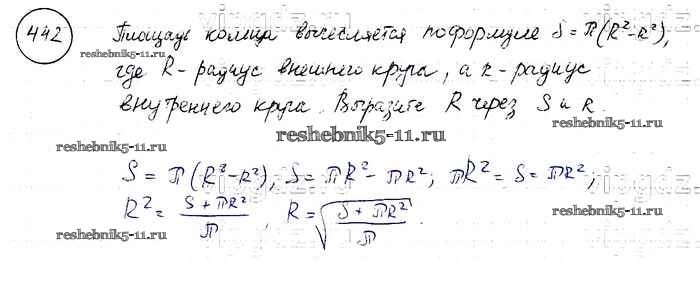 442 Площадь кольца вычесляется по формуле S = π(R² - R²),
где R - радиус внешнего круга, а r - радиус
внутреннего круга. Выразите R через S и R.
reshebnik5-11.ru
reshebnik5-11.ru
reshebnik5-11.ru
S = π(R² - R²), S = πR² - πR²; πR² = S = πR²;
R² = (S + πR²)/π, R = √((S + πR²)/π).
reshebnik5-11.ru
reshebnik5-11.ru